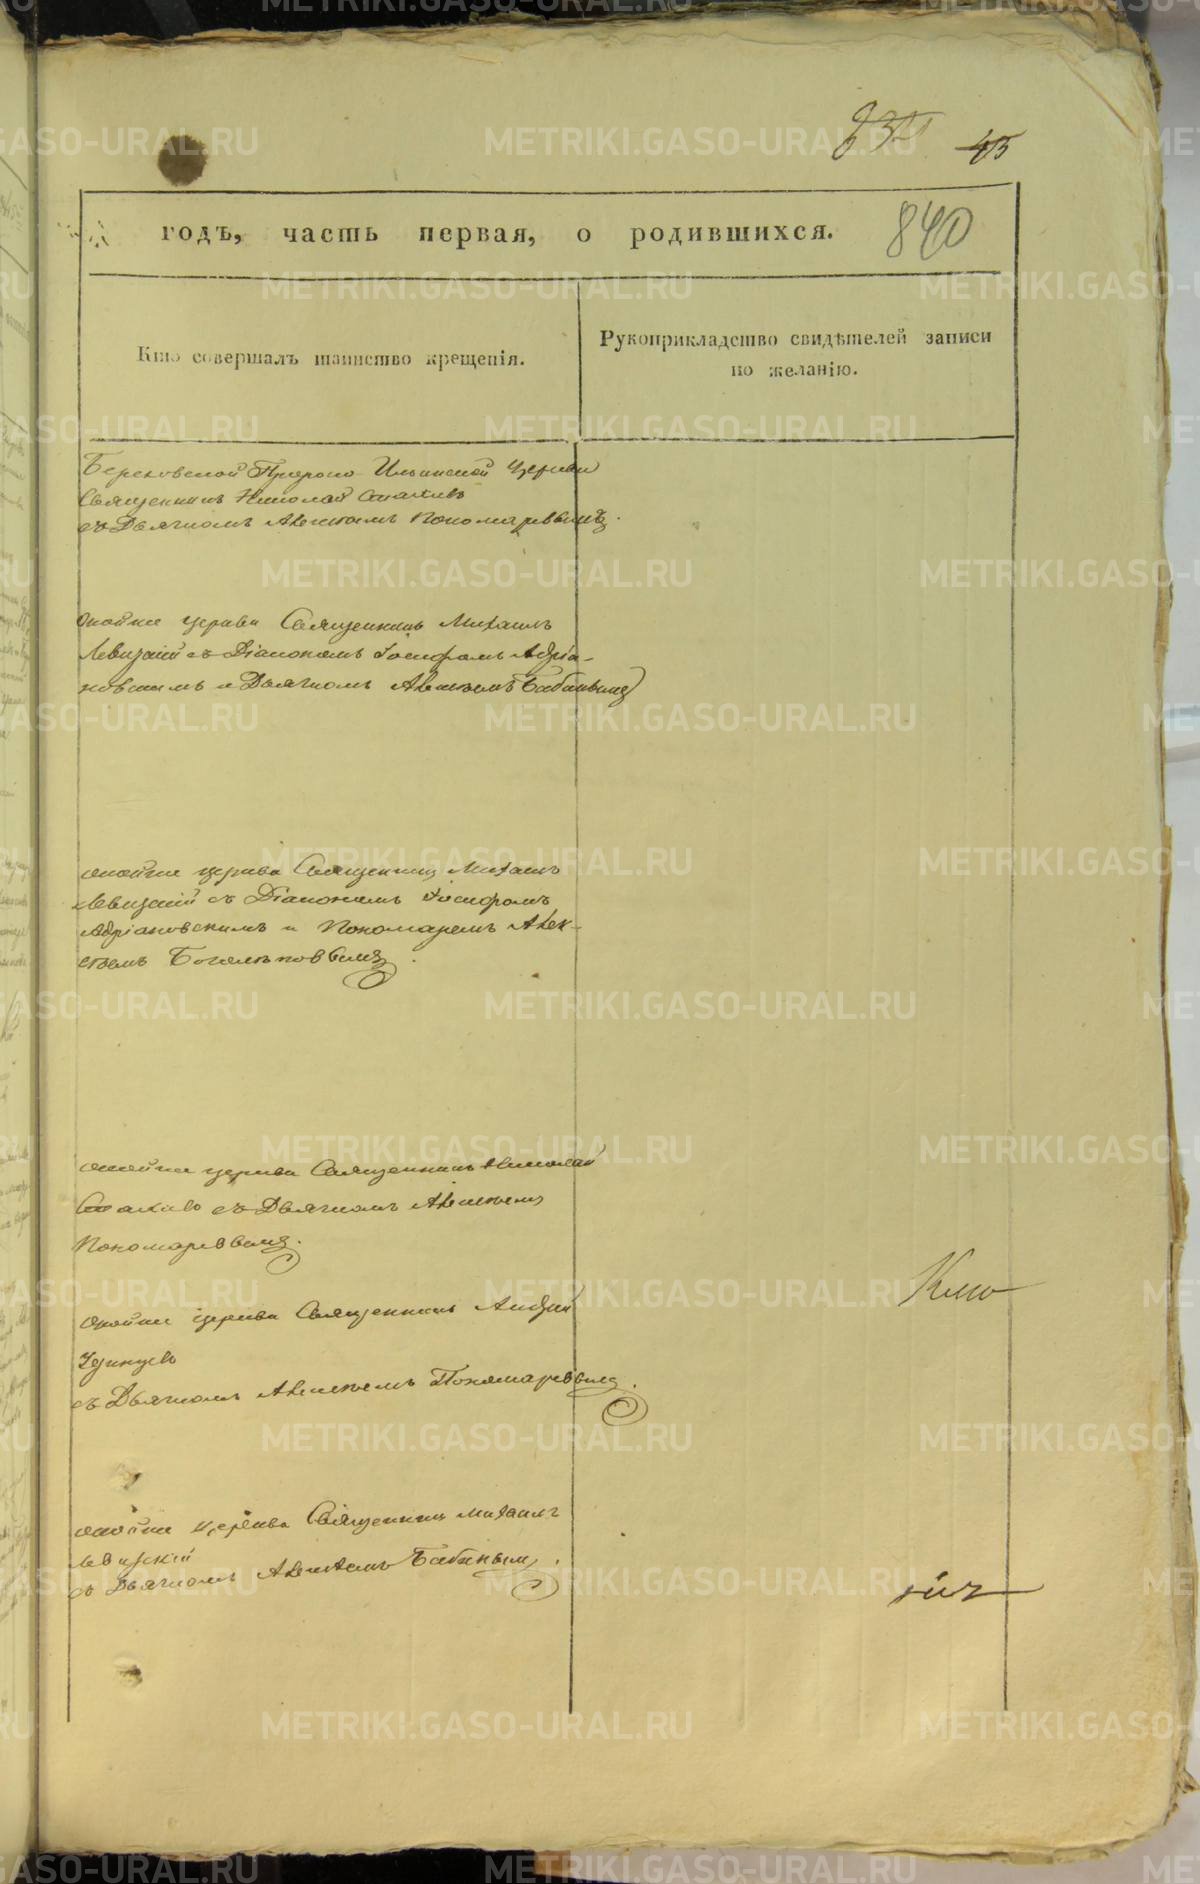 45
годъ, часть первая, о родившихся. 840
Кто совершалъ таинство крещенія.
Рукоприкладство свидѣтелей записи
по желанію.
Пророко Ильинской Церкви
Священникъ Николай
съ Дьячкомъ Алексѣемъ Пономаревымъ.
оной же церкви Священникъ Михаилъ
Левицкій съ Діакономъ Іосифомъ Адріа-
новскимъ и Дьячкомъ Алексѣемъ Бабинымъ
оной же церкви Священникъ Михаилъ
Левицкій съ Діакономъ Іосифомъ
Адріановскимъ и Пономаремъ Алек-
сѣемъ
оной же церкви Священникъ Николай
съ Дьячкомъ Алексѣемъ
Пономаревымъ.
оной же церкви Священникъ Андрей
Удинцевъ
съ Дьячкомъ Алексѣемъ Пономаревымъ.
оной же церкви Священникъ Михаилъ
Левицкій
съ Дьячкомъ Алексѣемъ Бабинымъ.
METRIKI.GASO-URAL.RU